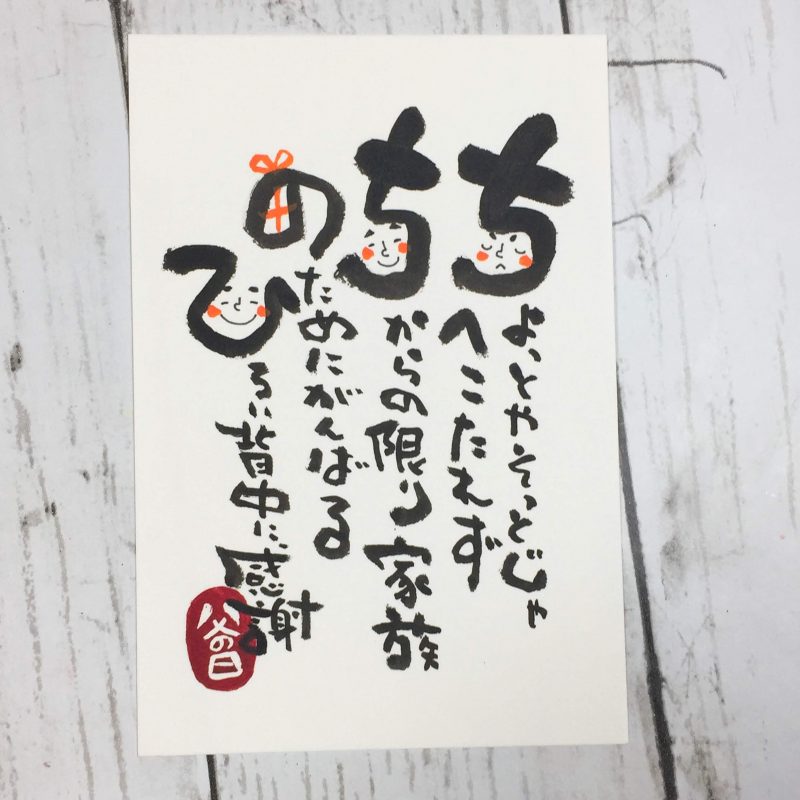 ちょっとやそっとじゃ
へこたれず
ちからの限り家族
のためにがんばる
ひろい背中に、感謝
父の日